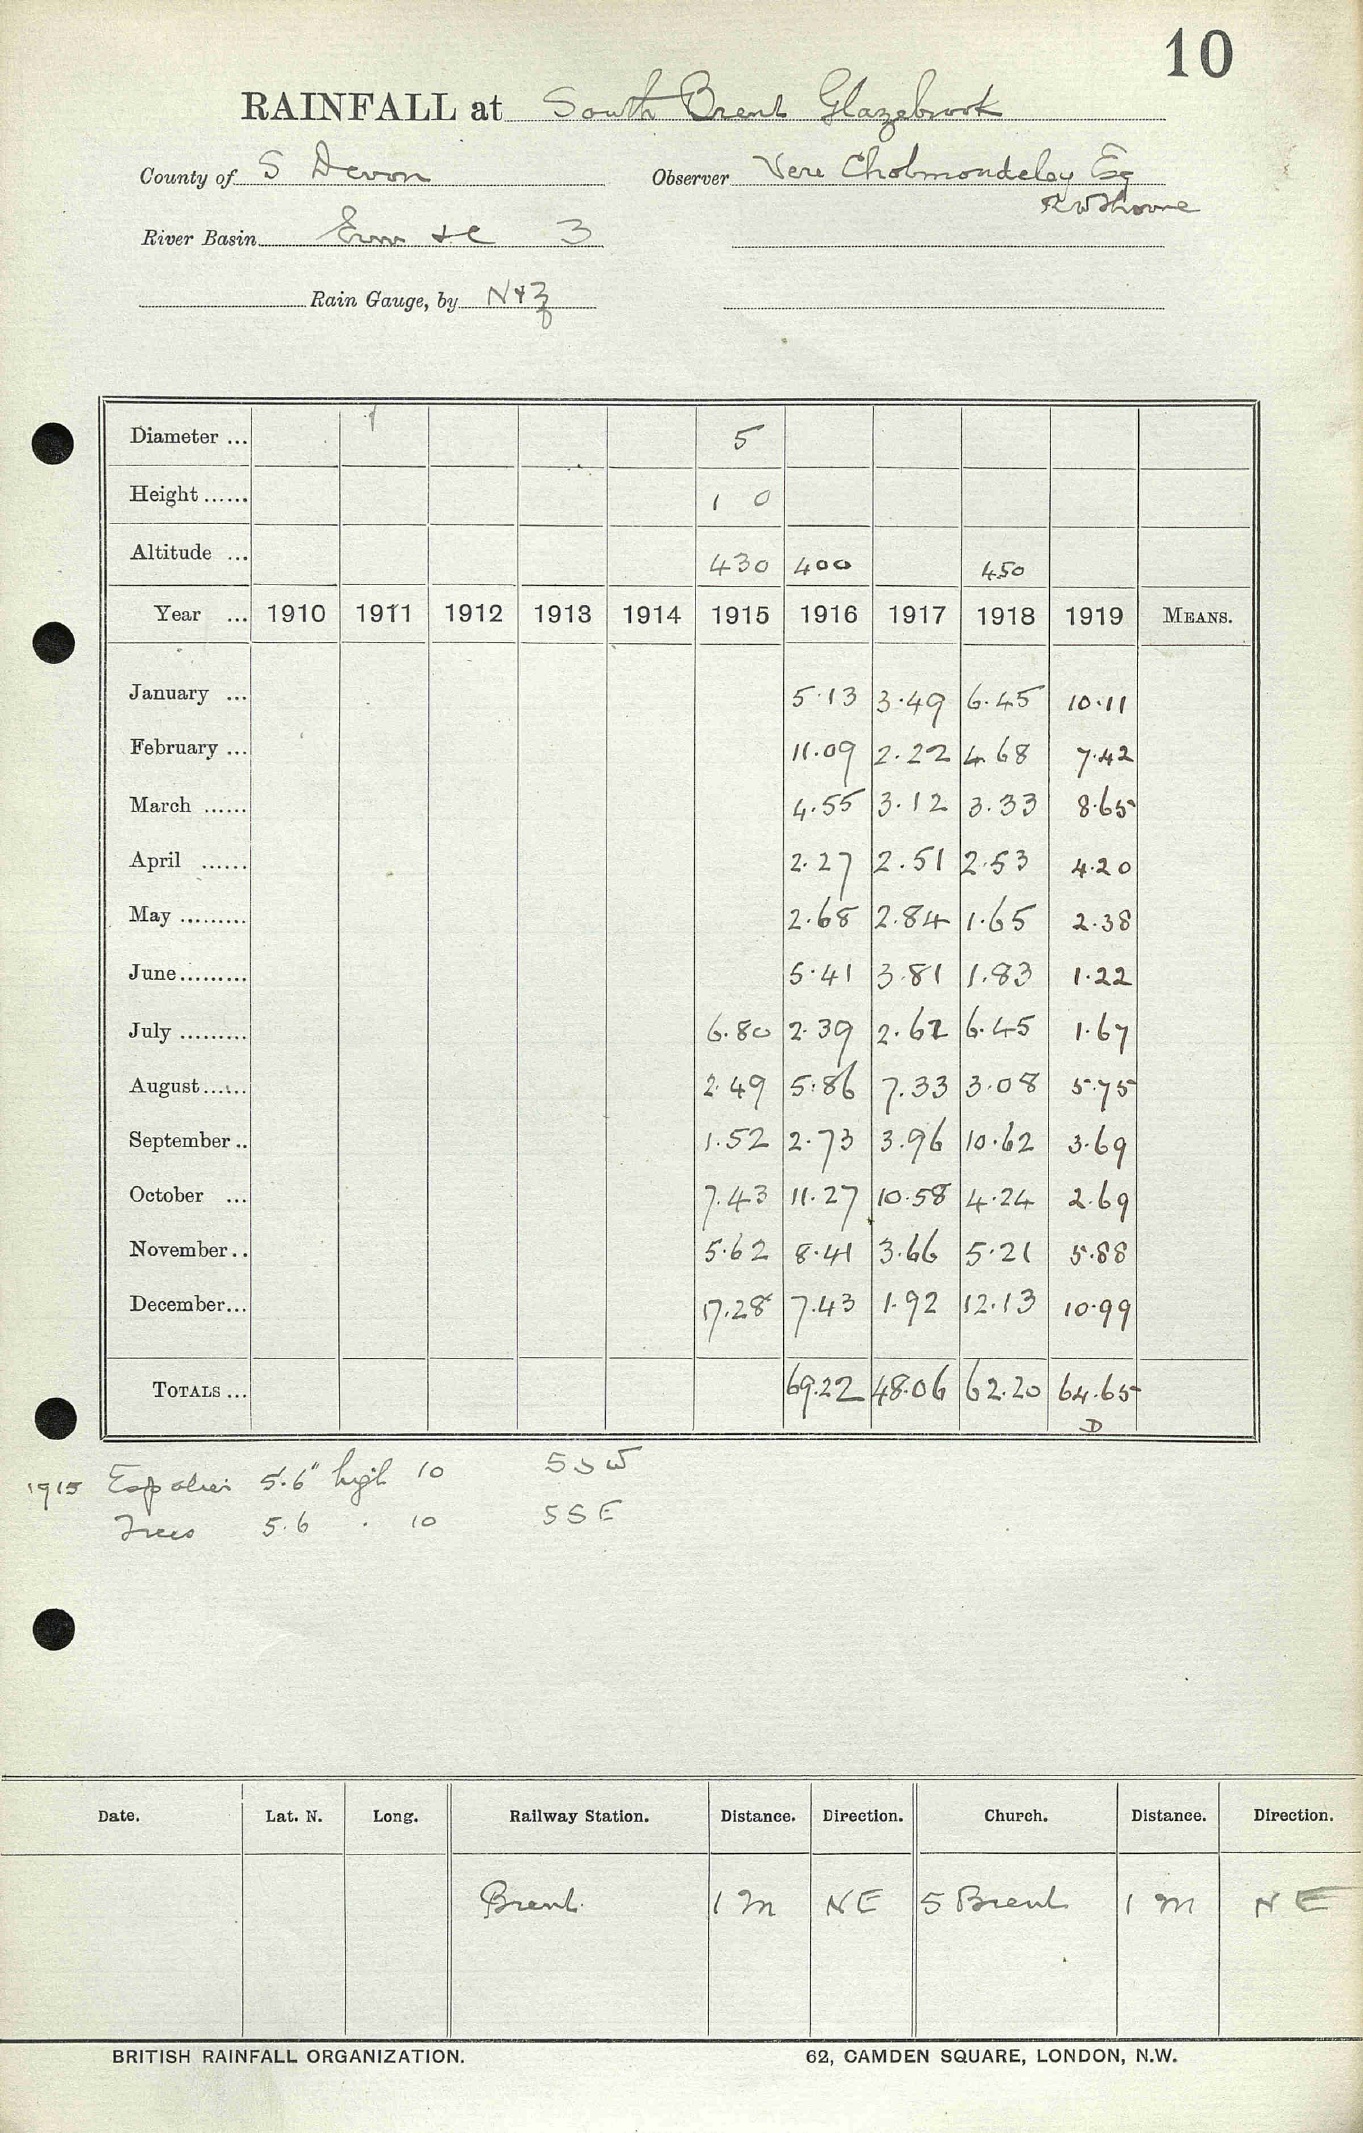 10
RAINFALL at South Brent Glazebrook
County of S Devon Observer Vere Cholmondeley Esq
R W Thorne
River Basin Erm &c 3
Rain Gauge, by N&Z
Diameter ... 5
Height ...... 1 0
Altitude ... 430 400 450
Year ... 1910 1911 1912 1913 1914 1915 1916 1917 1918 1919 MEANS.
January ... 5.13 3.49 6.45 10.11
February ... 11.09 2.22 4.68 7.42
March ...... 4.55 3.12 3.33 8.65
April ...... 2.27 2.51 2.53 4.20
May ......... 2.68 2.84 1.65 2.38
June......... 5.41 3.81 1.83 1.22
July ......... 6.80 2.39 2.62 6.45 1.67
August...... 2.49 5.86 7.33 3.08 5.75
September .. 1.52 2.73 3.96 10.62 3.69
October ... 7.43 11.27 10.58 4.24 2.69
November .. 5.62 8.41 3.66 5.21 5.88
December... 17.28 7.43 1.92 12.13 10.99
TOTALS ... 69.22 48.06 62.20 64.65
D
1915 Espalier 5.6" high 10 SSW
Trees 5.6 . 10 SSE
Date. Lat. N. Long. Railway Station. Distance. Direction. Church. Distance. Direction.
Brent. 1 m NE S Brent 1 m NE
BRITISH RAINFALL ORGANIZATION. 62, CAMDEN SQUARE, LONDON, N.W.